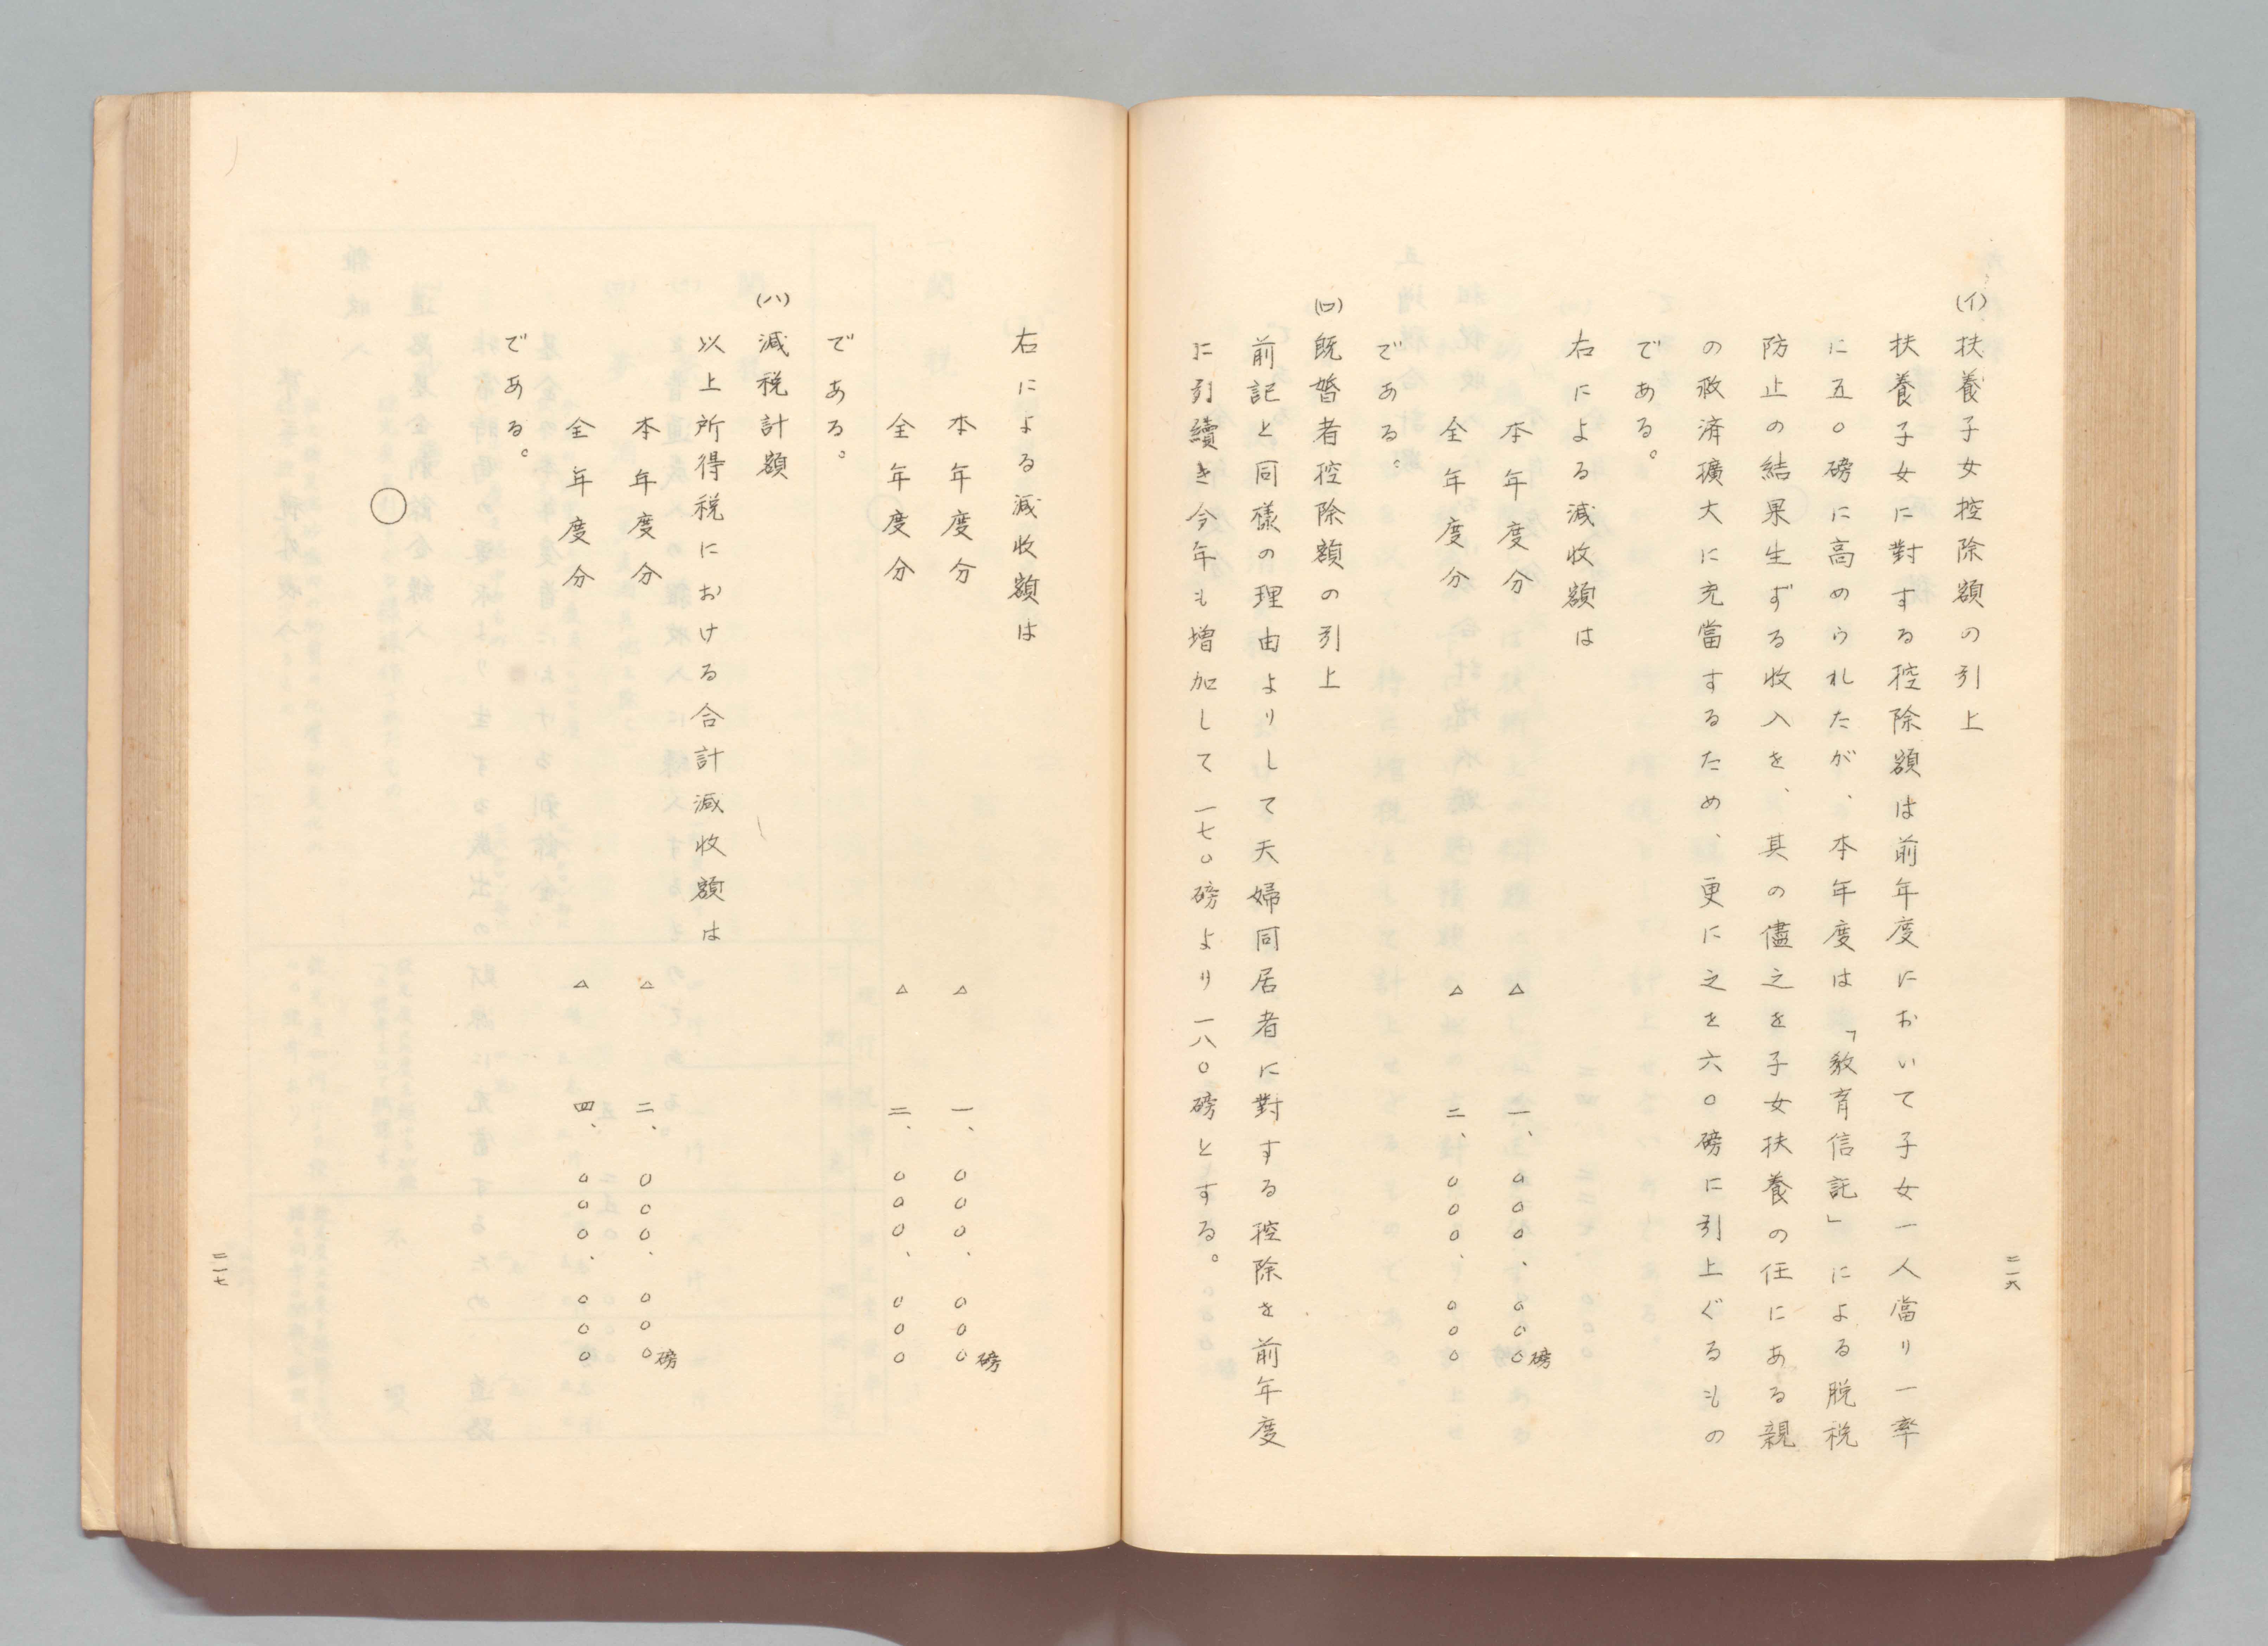 (イ)扶養子女控除額の引上
扶養子女に對する控除額は前年度において子女一人當り一率
に五〇磅に高められたが、本年度は「敎育信託」による脱税
防止の結果生ずる收入を、其の儘之を子女扶養の任にある親
の救済擴大に充當するため、更に之を六〇磅に引上ぐるもの
である。
右による減收額は
本年度分 △ 一、〇〇〇、〇〇〇磅
全年度分 △ 二、〇〇〇、〇〇〇
である。
(ロ)既婚者控除額の引上
前記と同樣の理由よりして天婦同居者に對する控除を前年度
に引續き今年も增加して一七〇磅より一八〇磅とする。
二一六
右による減收額は
本年度分 △ 一、〇〇〇、〇〇〇磅
全年度分 △ 二、〇〇〇、〇〇〇
である。
(ハ)減税計額
以上所得税における合計減收額は
本年度分 △ 二、〇〇〇、〇〇〇磅
全年度分 △ 四、〇〇〇、〇〇〇
である。
二一七